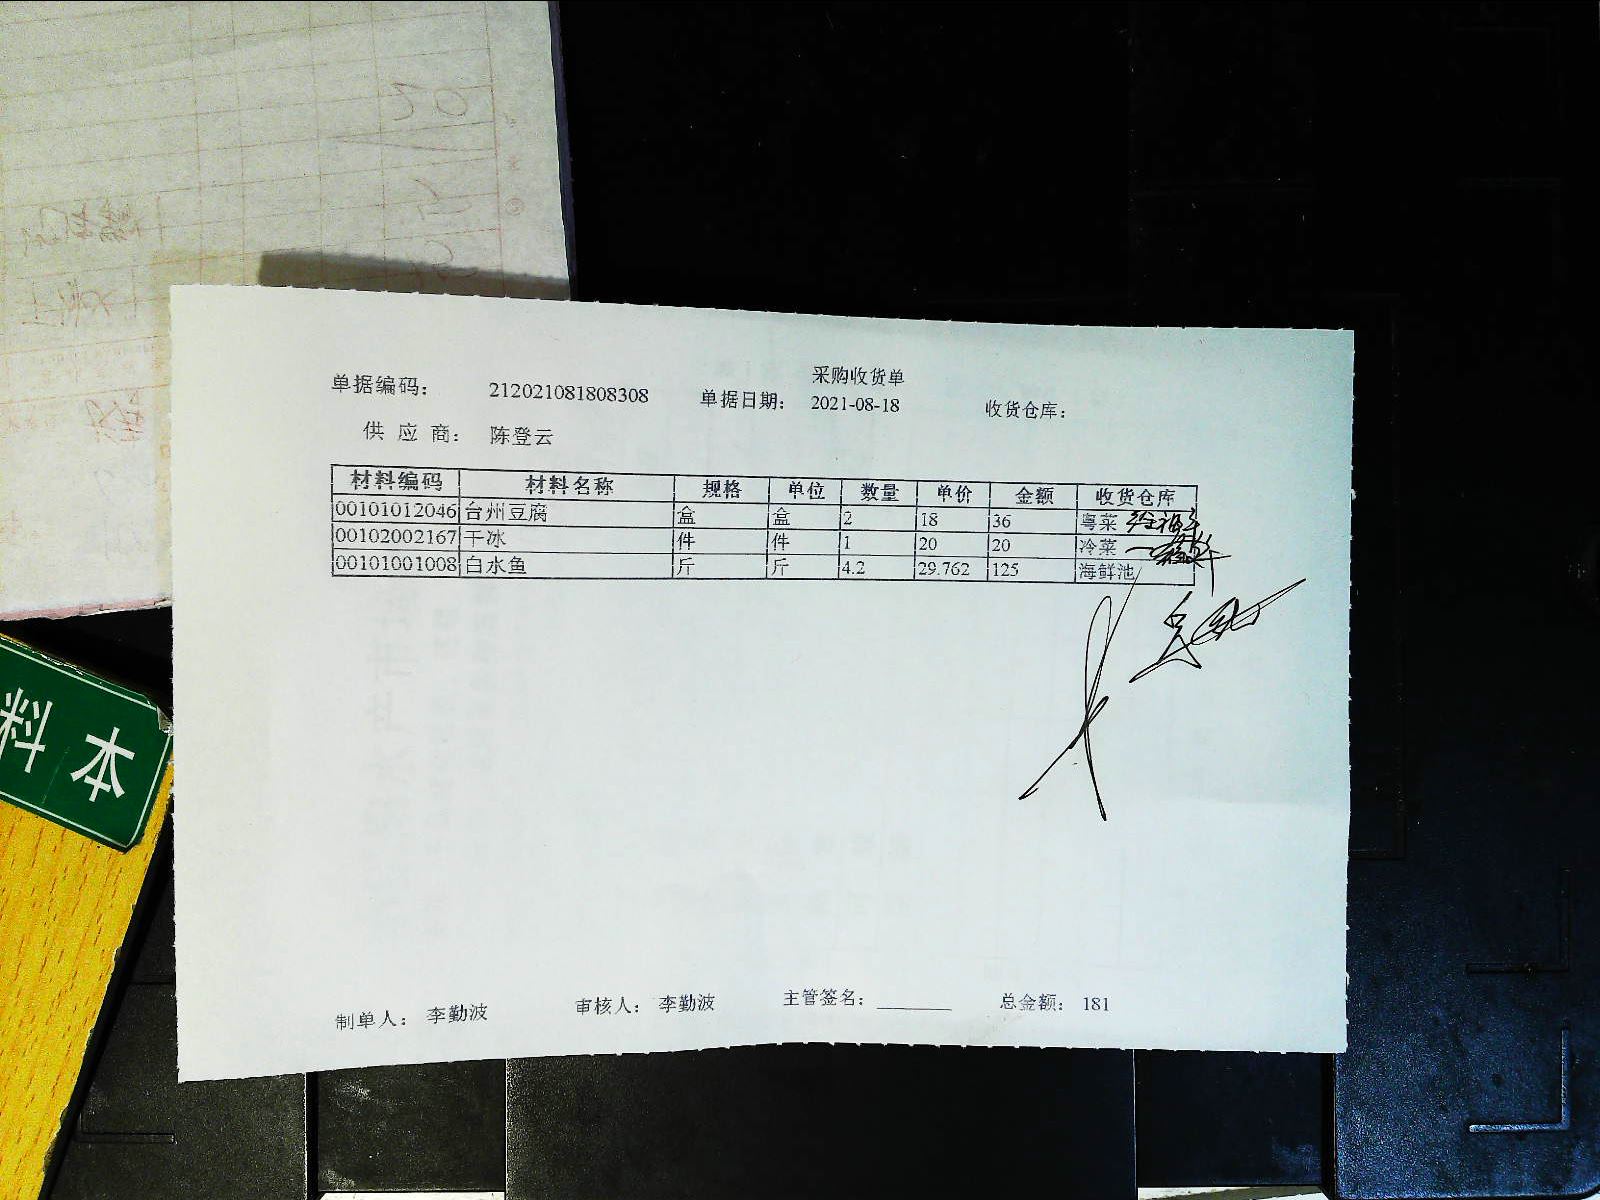 采购收货单
单据编码： 212021081808308 单据日期： 2021-08-18 收货仓库：
供 应 商： 陈登云
材料编码 材料名称 规格 单位 数量 单价 金额 收货仓库
00101012046 台州豆腐 盒 盒 2 18 36 粤菜
00102002167 干冰 件 件 1 20 20 冷菜
00101001008 白水鱼 斤 斤 4.2 29.762 125 海鲜池
制单人： 李勤波 审核人： 李勤波 主管签名： 总金额： 181
本
料
20